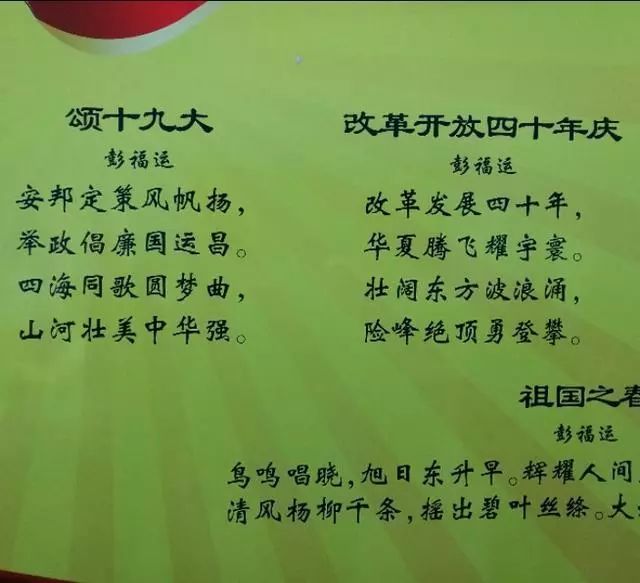 颂十九大
彭福运
安邦定策风帆扬，
举政倡廉国运昌。
四海同歌圆梦曲，
山河壮美中华强。
改革开放四十年庆
彭福运
改革发展四十年，
华夏腾飞耀宇寰。
壮阔东方波浪涌，
险峰绝顶勇登攀。
祖国之春
彭福运
鸟鸣唱晓，旭日东升早。辉耀人间
清风杨柳千条，摇出碧叶丝绦。大